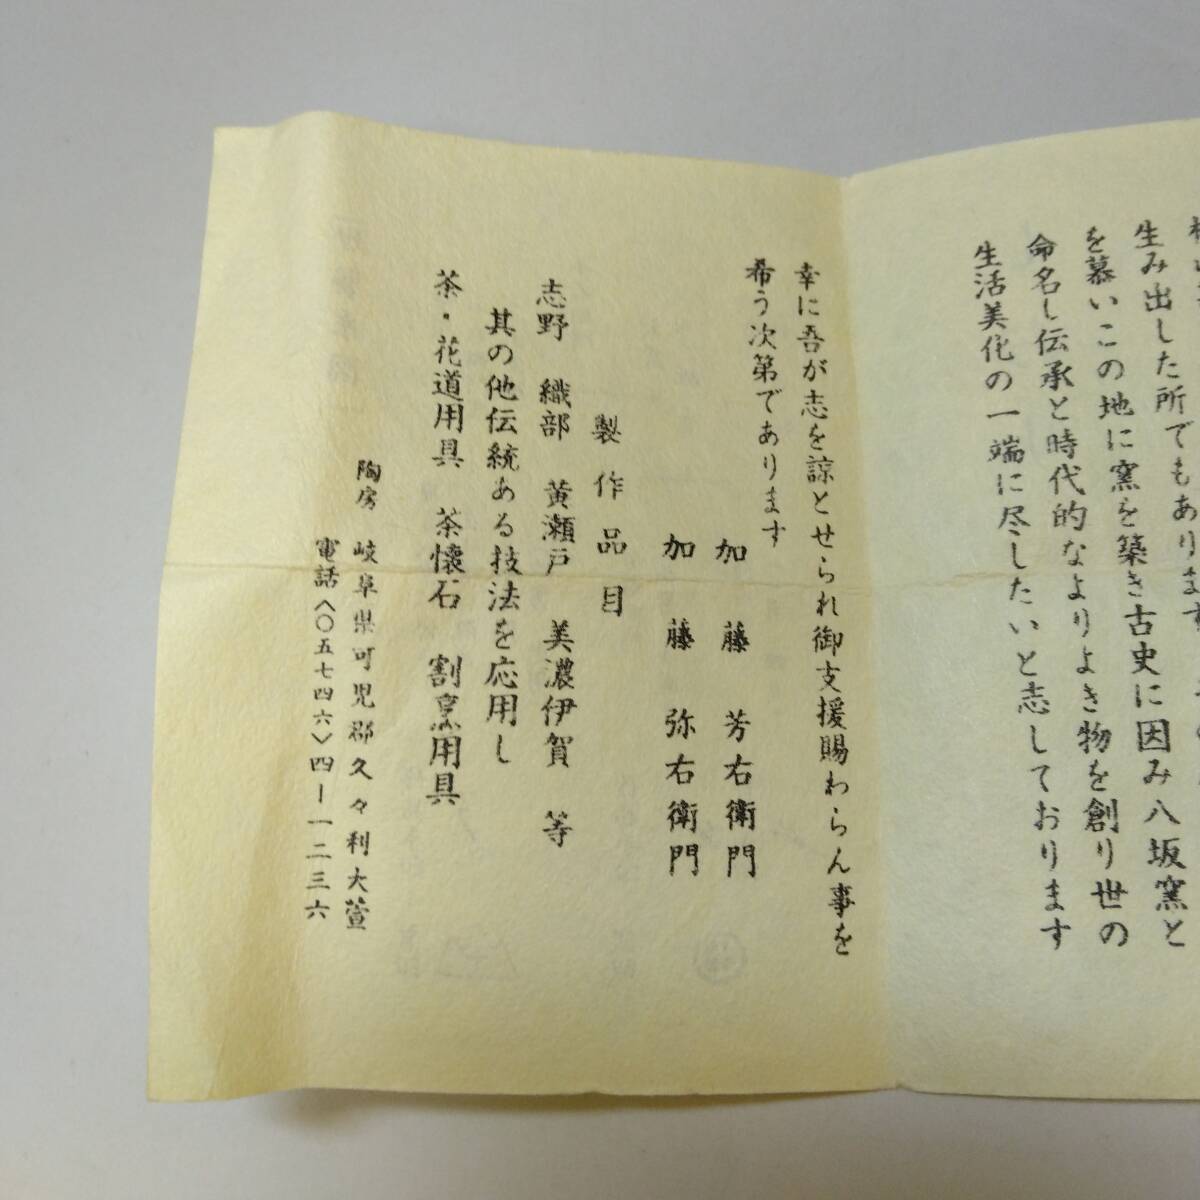 生み出した所でもあります
を慕いこの地に窯を築き古史に因み八坂窯と
命名し伝承と時代的なよりよき物を創り世の
生活美化の一端に尽したいと志しております
幸に吾が志を諒とせられ御支援賜わらん事を
希う次第であります
加藤芳右衛門
加藤弥右衛門
製作品目
志野　織部　黄瀬戸　美濃伊賀　等
其の他伝統ある技法を応用し
茶・花道用具　茶懐石　割烹用具
陶房　岐阜県可児郡久々利大萱
電話〈〇五七四六〉四－一二三六